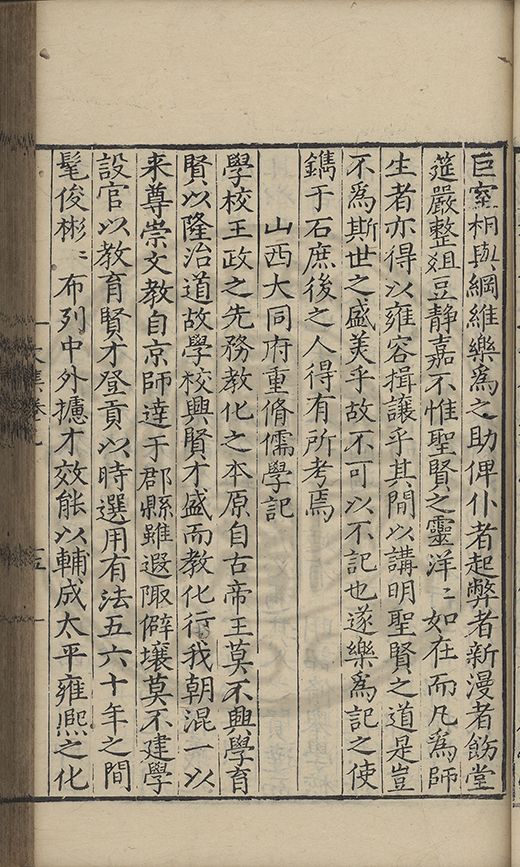 巨室相與綱維樂為之助俾仆者起弊者新漫者飭堂
筵嚴整俎豆靜嘉不惟聖賢之靈洋〻如在而凡為師
生者亦得以雍容揖讓乎其間以講明聖賢之道是豈
不為斯世之盛美乎故不可以不記也遂樂為記之使
鐫于石庶後之人得有所考焉
山西大同府重脩儒學記
學校王政之先務教化之本原自古帝王莫不興學育
賢以隆治道故學校興賢才盛而教化行我朝混一以
来尊崇文教自京師達于郡縣雖遐陬僻壤莫不建學
設官以教育賢才登貢以時選用有法五六十年之間
髦俊彬〻布列中外攄才效能以輔成太平雍熙之化
文集卷九
五